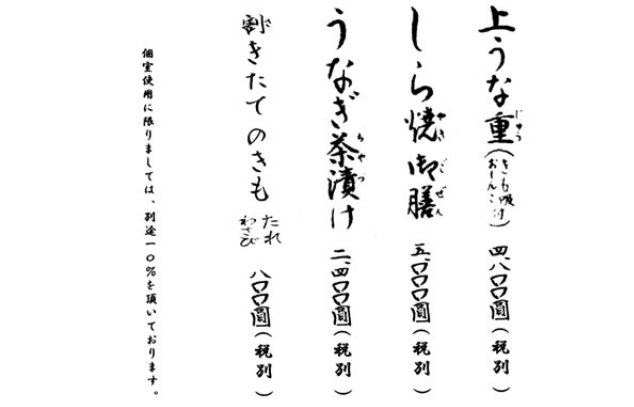 上うな重(きも吸付 おしんこ) 四、八〇〇圓(税別)
じゅう
しら焼御膳 五、〇〇〇圓(税別)
やき ごぜん
うなぎ茶漬け 二、四〇〇圓(税別)
ちゃづ
割きたてのきも たれ わさび 八〇〇圓(税別)
個室使用に限りましては、別途一〇%を頂いております。